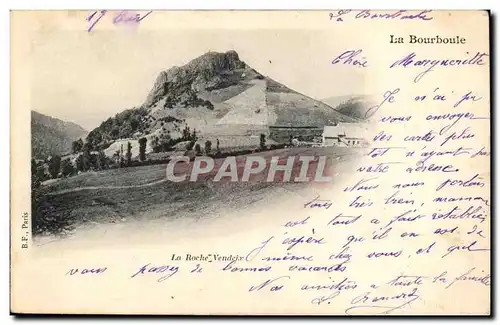 La Bourboule
La Bourboule
Chère Marguerite
Je n'ai pu
vous envoyer
des cartes plus
tôt n'ayant pas
votre adresse
Nous nous portons
tous très bien, maman
est tout à fait rétablie
J'espère qu'il en est de
même chez vous et que
vous passez de bonnes vacances
Nos amitiés à toute la famille
CPARAMA.COM
La Roche Vendeix
B.F., Paris